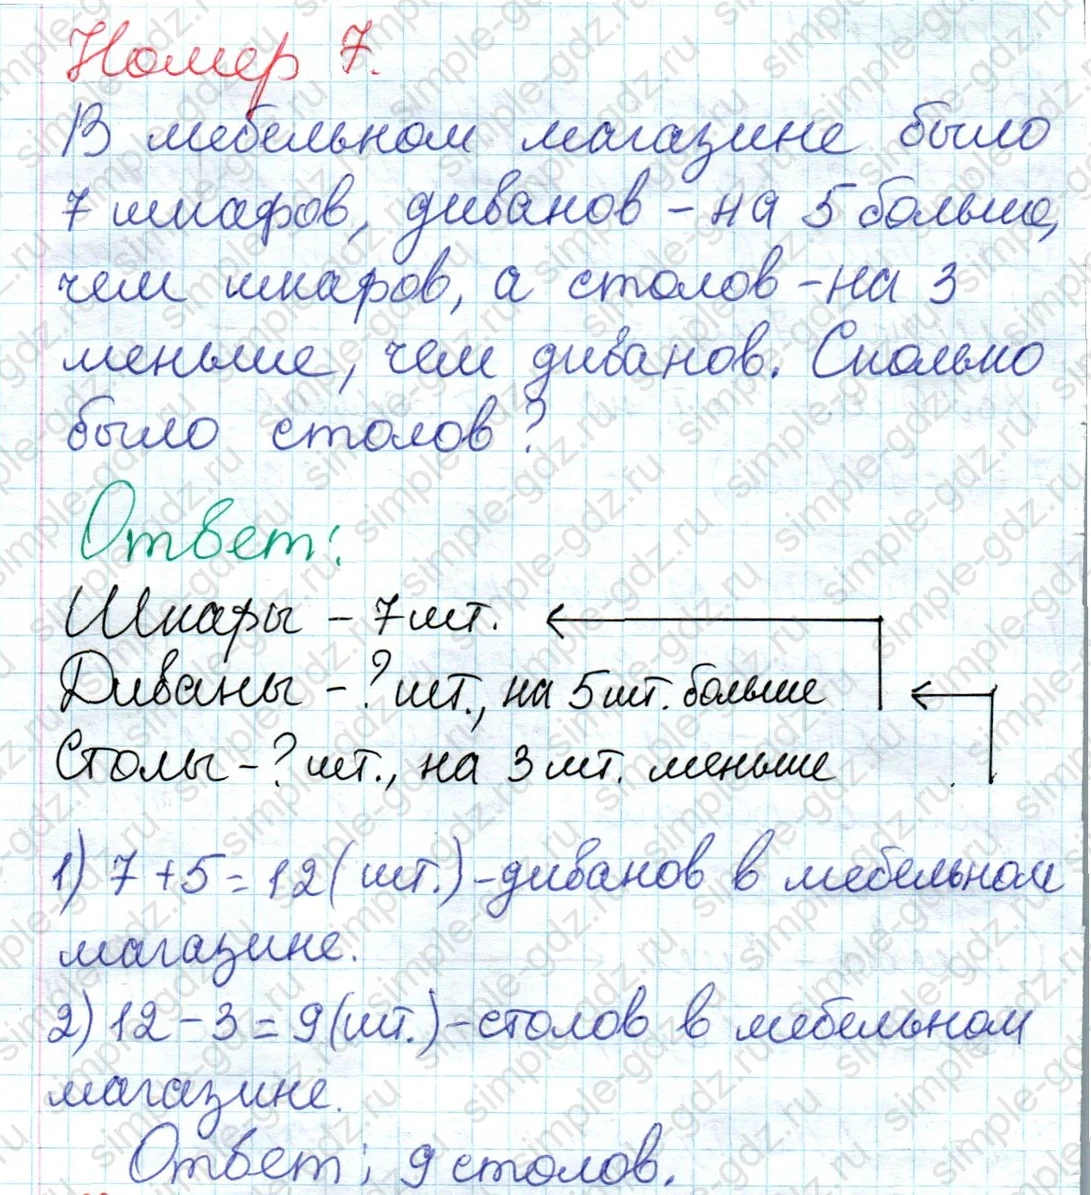 Номер 7.
В мебельном магазине было
7 шкафов, диванов - на 5 больше,
чем шкафов, а столов - на 3
меньше, чем диванов. Сколько
было столов?
Ответ:
Шкафы - 7 шт.
Диваны - ? шт., на 5 шт. больше
Столы - ? шт., на 3 шт. меньше
1) 7 + 5 = 12 (шт.) - диванов в мебельном
магазине.
2) 12 - 3 = 9 (шт.) - столов в мебельном
магазине.
Ответ: 9 столов.
simple-gdz.ru